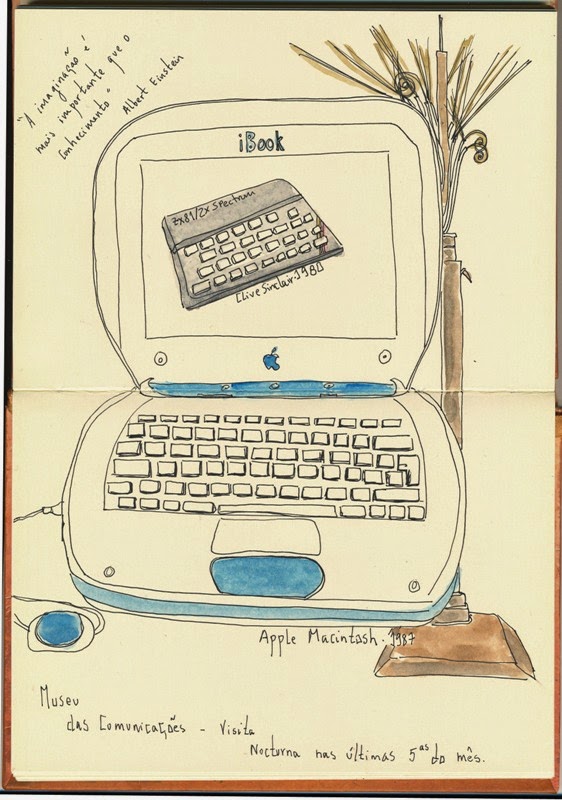 "A imaginação é
mais importante que o
Conhecimento"
Albert Einstein
iBook
ZX81/ZX Spectrum
Clive Sinclair.1980
Apple Macintosh. 1987
Museu
das Comunicações - Visita
Nocturna nas últimas 5ªs do mês.